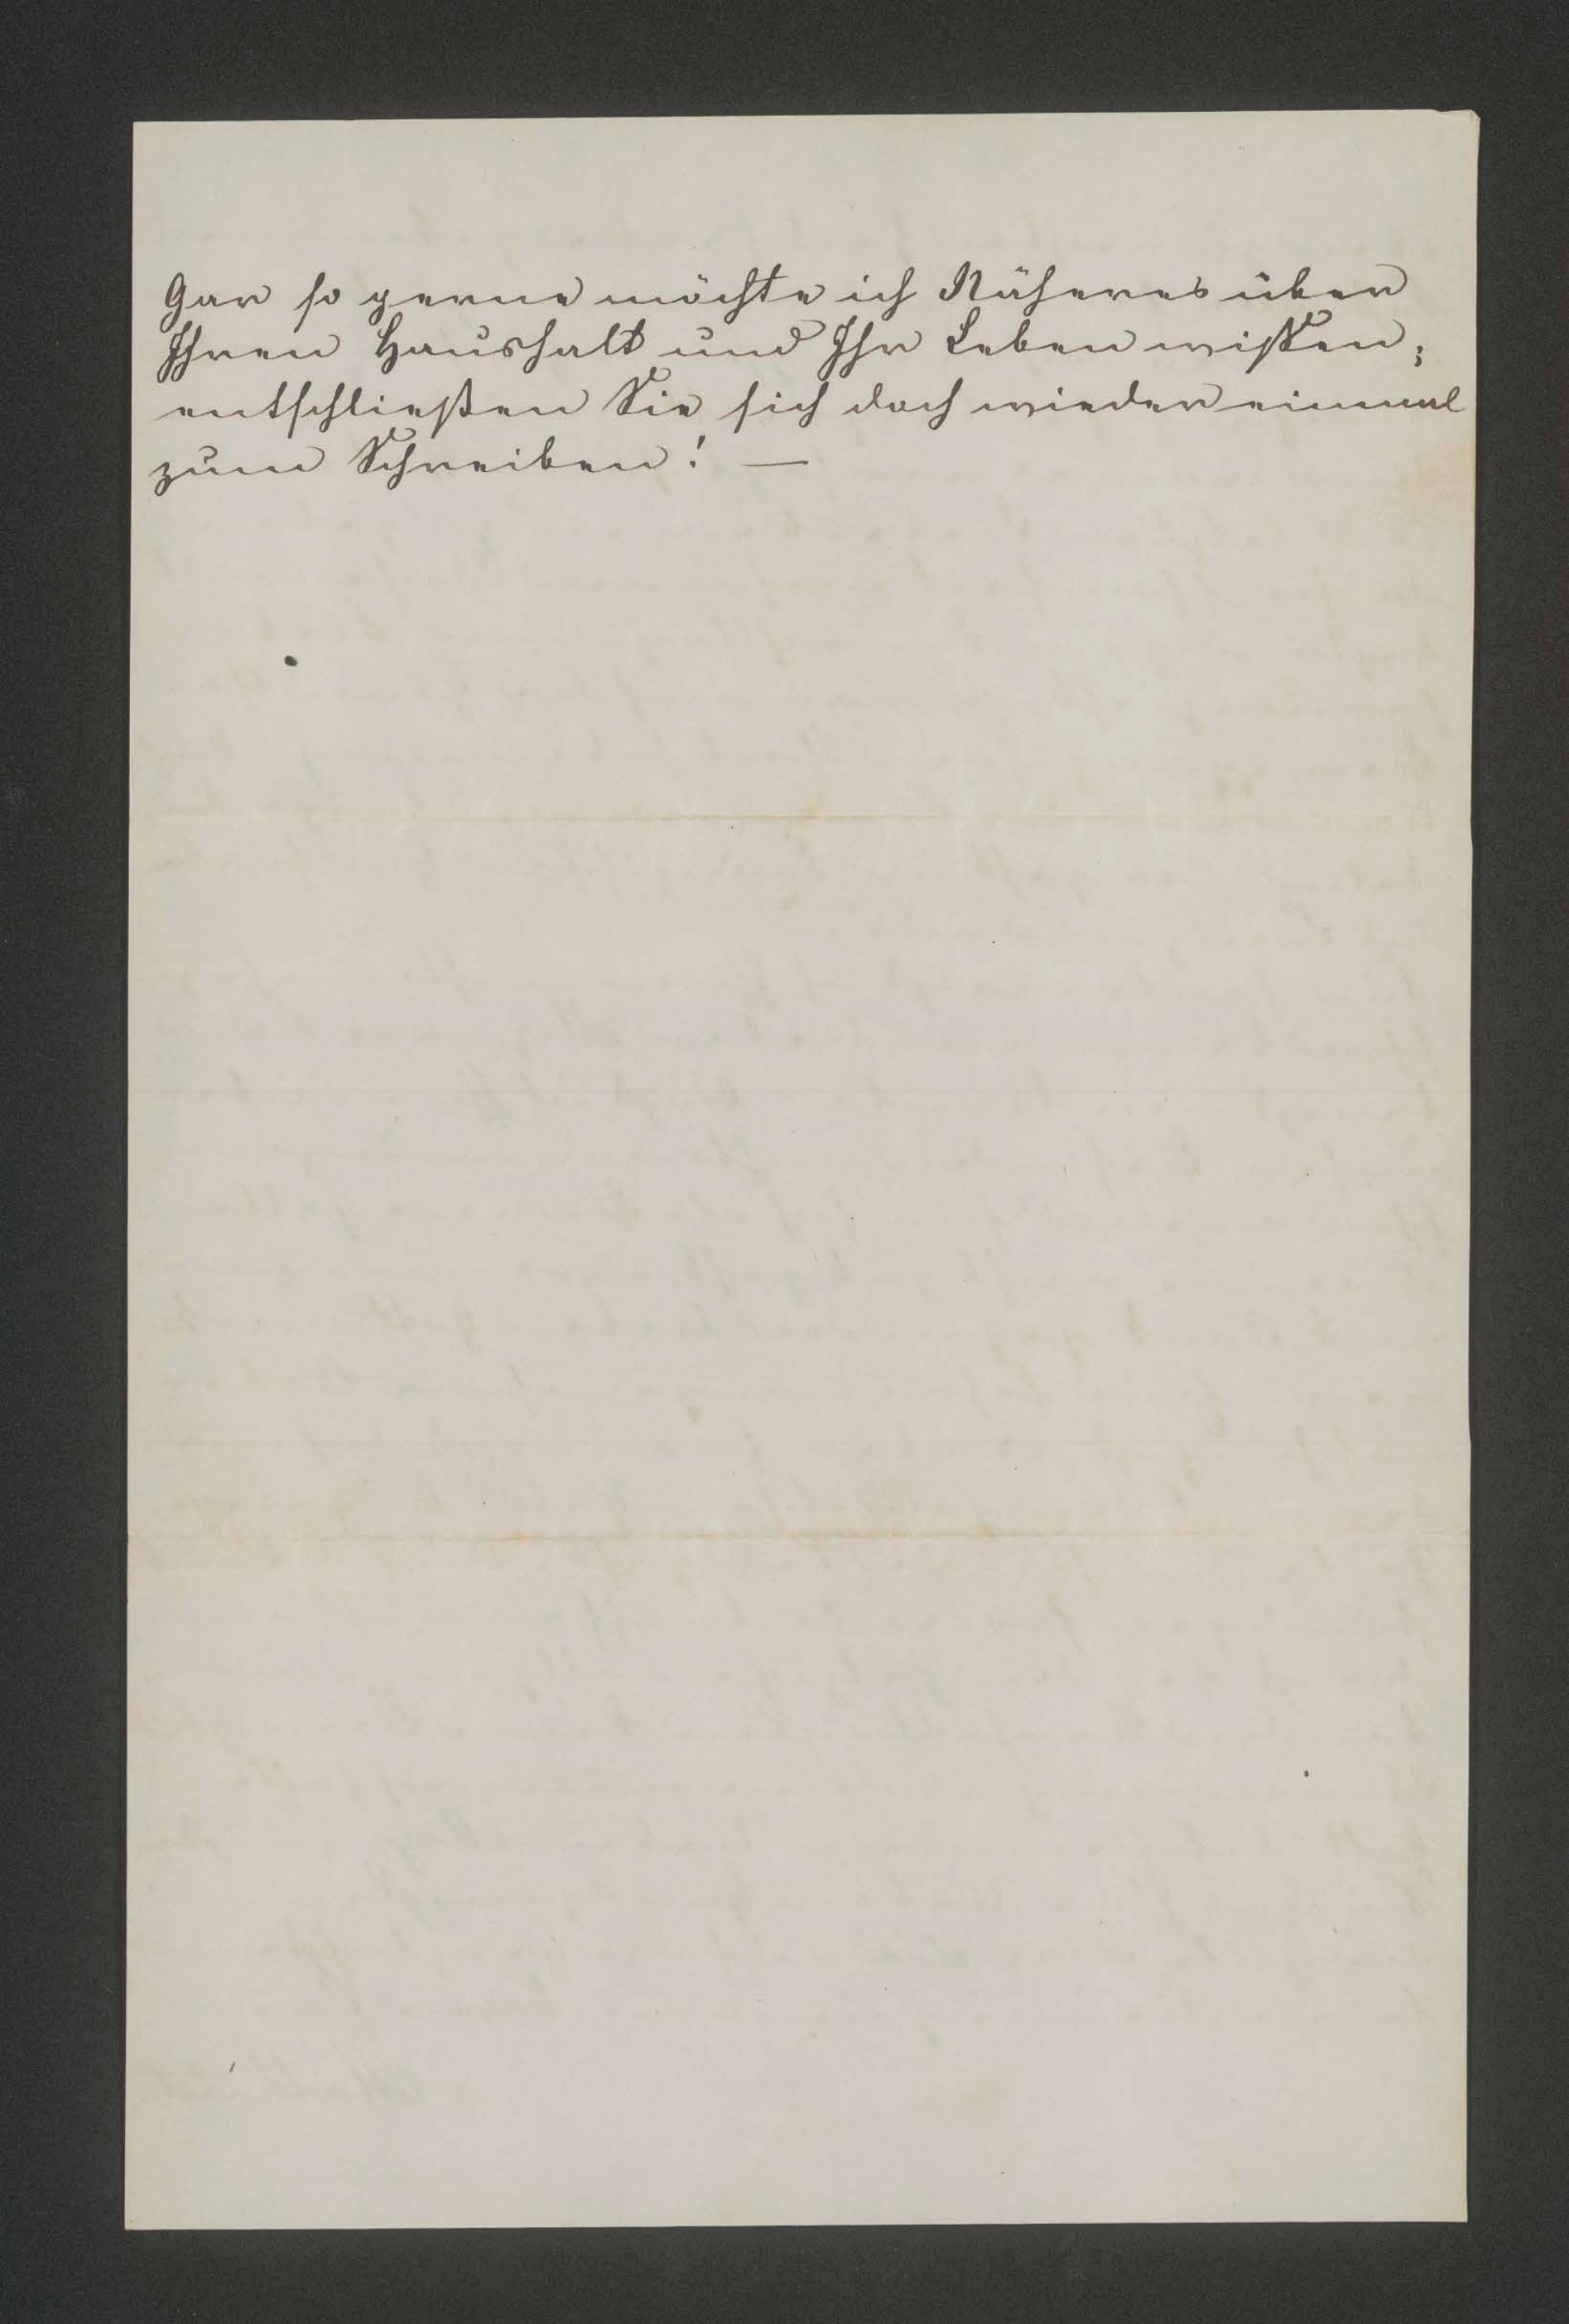 Gar so gerne möchte ich Näheres über
Ihren Haushalt und Ihr Leben wissen;
entschließen Sie sich doch wieder einmal
zum Schreiben! —